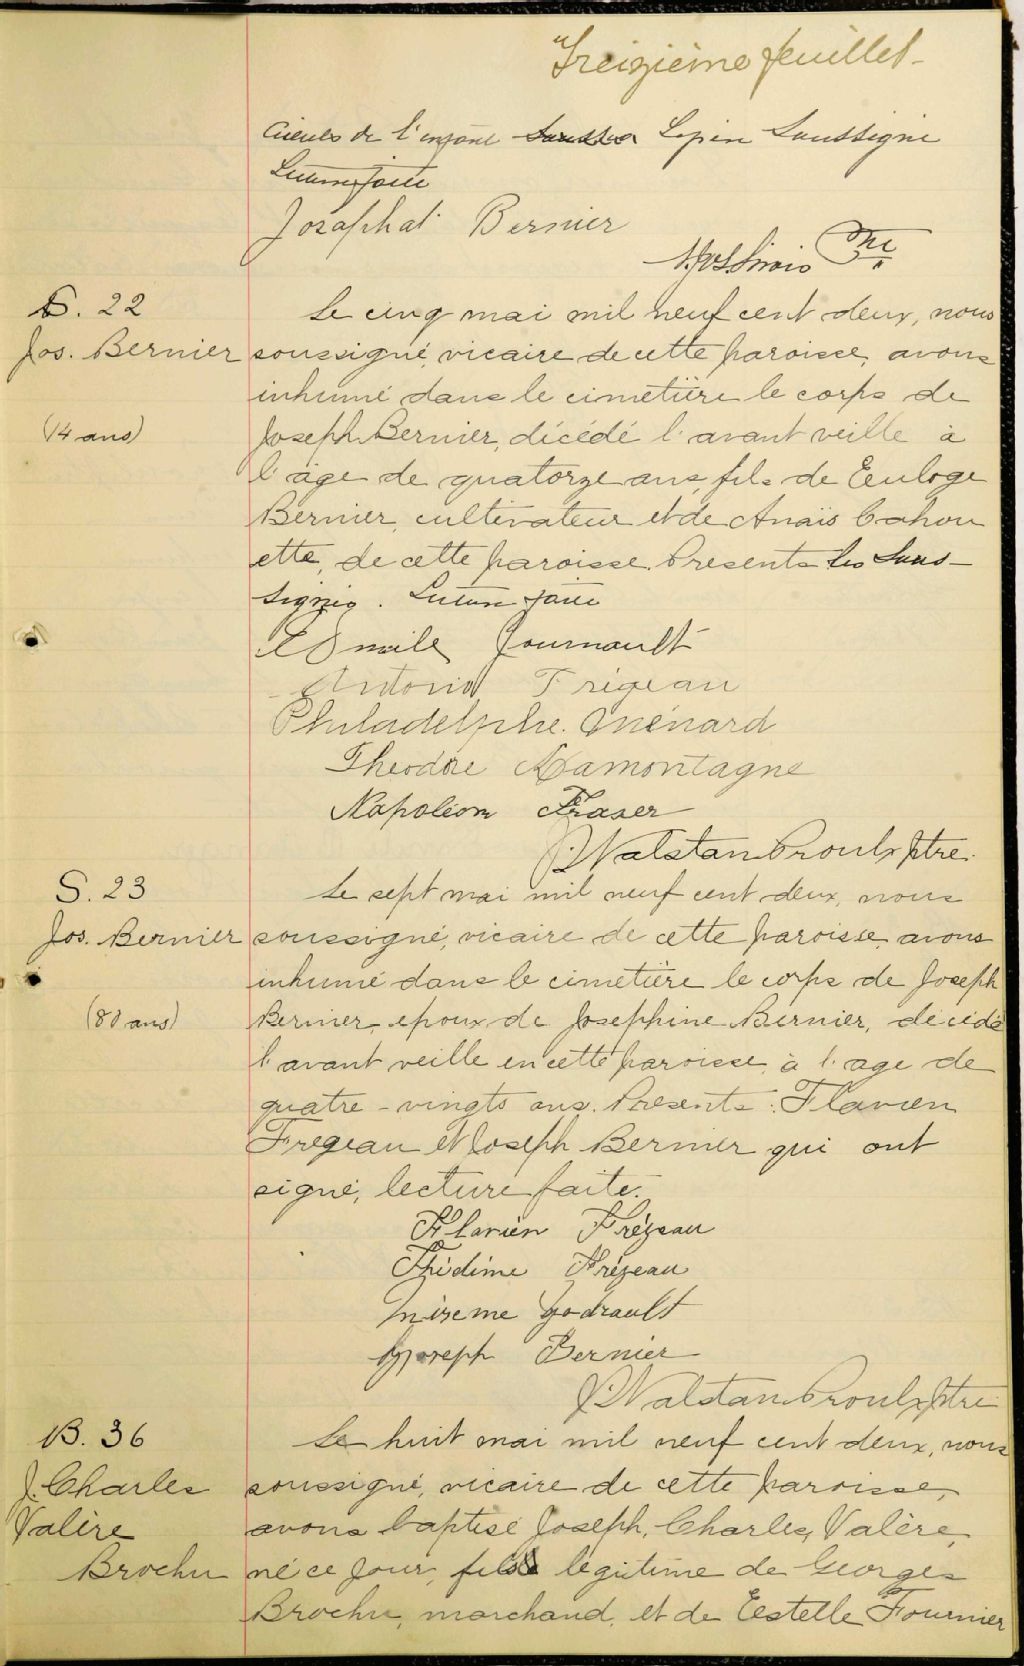 Treizième feuillet-
aieuls de l'enfant Lepère Soussigné
Lecture faite
Josaphat Bernier
Ptre
S. 22
Jos. Bernier
(14 ans)
Le cinq mai mil neuf cent deux, nous
soussigné, vicaire de cette paroisse, avons
inhumé dans le cimetière le corps de
Joseph Bernier, décédé l'avant veille à
l'âge de quatorze ans, fils de Euloge
Bernier, cultivateur et de Anaïs Cahou
ette, de cette paroisse. Présents les Sous-
signés. Lecture faite
Émile Journault
Antonio Frégeau
Philadelphe Ménard
Theodore Lamontagne
Napoléon Fraser
J. Walstan Proulx Ptre.
S. 23
Jos. Bernier
(80 ans)
Le sept mai mil neuf cent deux, nous
soussigné, vicaire de cette paroisse, avons
inhumé dans le cimetière le corps de Joseph
Bernier, époux de Josephine Bernier, décédé
l'avant veille en cette paroisse, à l'age de
quatre-vingts ans. Présents: Flavien
Fregeau et Joseph Bernier qui ont
signé, lecture faite.
Flavien Frégeau
Thédime Frégeau
Joseph Bernier
J. Walstan Proulx Ptre
B. 36
J. Charles
Valère
Brochu
Le huit mai mil neuf cent deux, nous
soussigné, vicaire de cette paroisse,
avons baptisé Joseph, Charles, Valère,
né ce jour, fils légitime de Georges
Brochu, marchand, et de Estelle Fournier